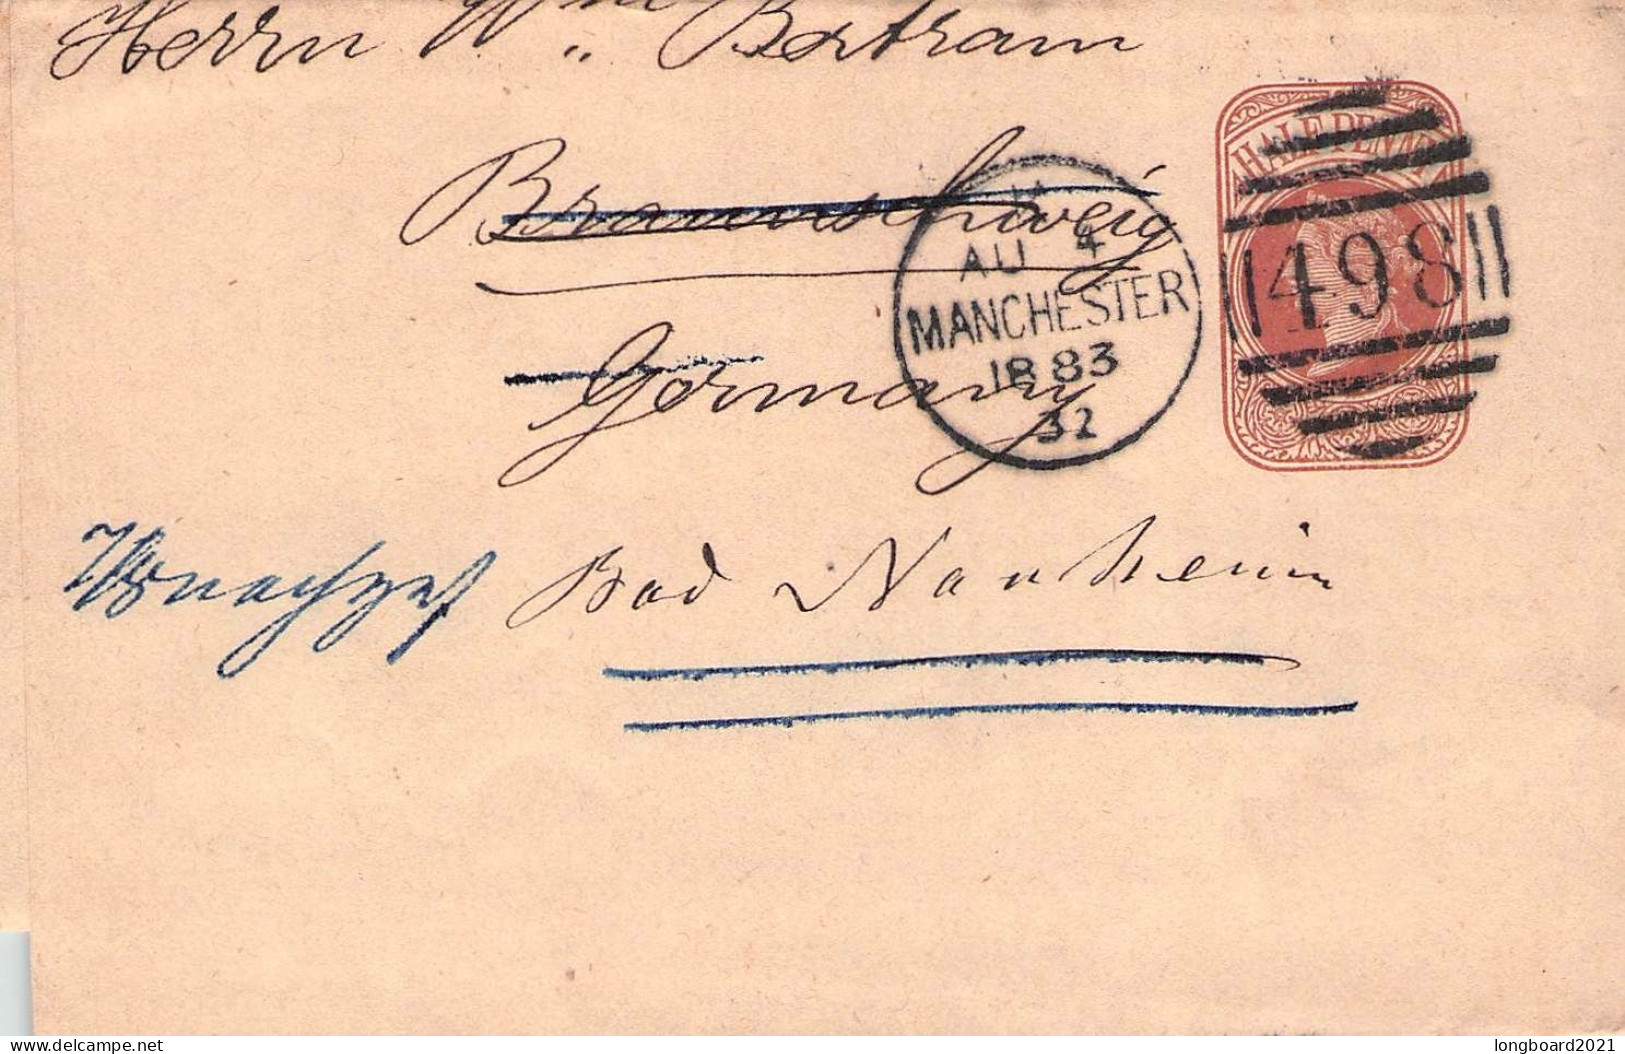 Herrn Wm Bertram
Braunschweig
Germany
Bad Nauheim
HALFPENNY
498
AU 4
MANCHESTER
1883
32
Delcampe.net
longboard2021